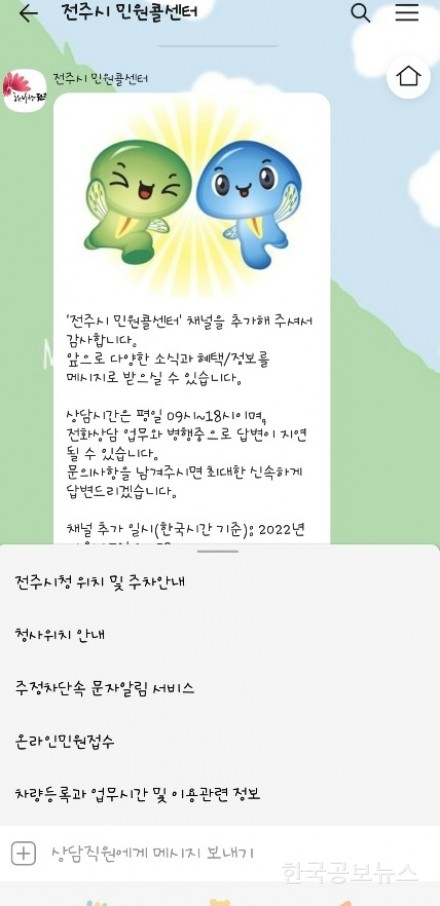 전주시 민원콜센터
전주시 민원콜센터
'전주시 민원콜센터' 채널을 추가해 주셔서
감사합니다.
앞으로 다양한 소식과 혜택/정보를
메시지로 받으실 수 있습니다.
상담시간은 평일 09시~18시이며,
전화상담 업무와 병행중으로 답변이 지연
될 수 있습니다.
문의사항을 남겨주시면 최대한 신속하게
답변드리겠습니다.
채널 추가 일시(한국시간 기준): 2022년
전주시청 위치 및 주차안내
청사위치 안내
주정차단속 문자알림 서비스
온라인민원접수
차량등록과 업무시간 및 이용관련 정보
상담직원에게 메시지 보내기
한국공보뉴스